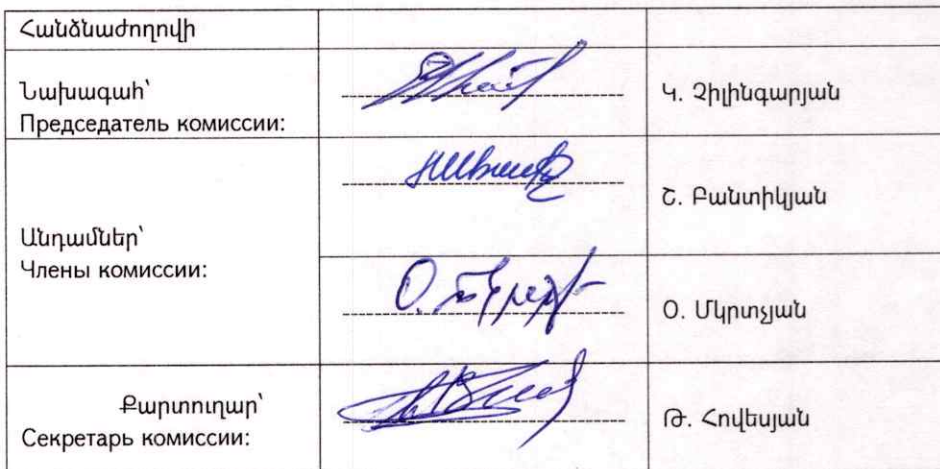 Հանձնաժողովի
Նախագահ՝
Председатель комиссии:
Կ. Չիլինգարյան
Շ. Բանտիկյան
Անդամներ՝
Члены комиссии:
Օ. Մկրտչյան
Քարտուղար՝
Секретарь комиссии:
Թ. Հովեսյան